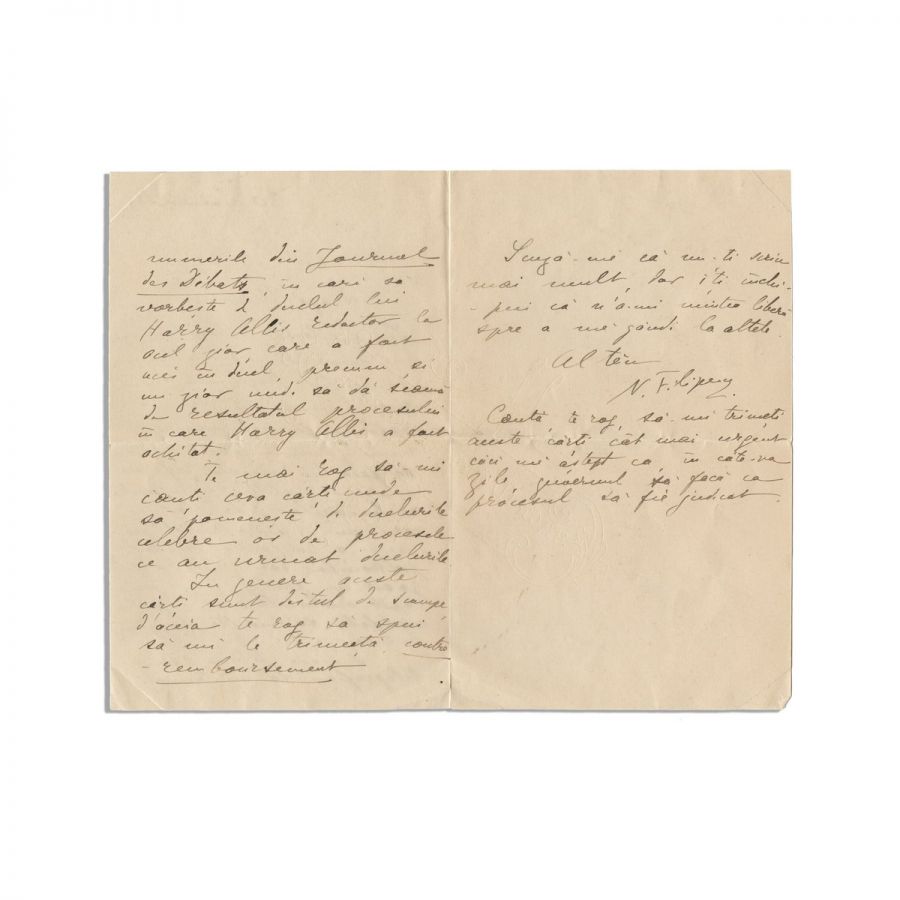 numerile din Journal
des Débats, in cari sà
vorbeste d' duelul lui
Harry Allis redactor la
acel ziar care a fost
ucis in duel precum si
un ziar unde sà dà séamà
de resultatul procesului
in care Harry Allis a fost
achitat.
Te mai rog sà-mi
cauti ceva càrti unde
sà pomeneste d' duelurile
celebre or de procesele
ce au urmat duelurile.
In genere aceste
càrti sunt destul de scumpe
d'aceia te rog sà spui
sà mi le trimeatà contre
-remboursement
Scuzà-mà cà nu-ti scriu
mai mult, dar iti inchi-
-pui cà n'am mintea liberà
spre a mà gàndi la altele.
Al tèu
N. F.
Cautà, te rog, sà-mi trimeti
aceste càrti càt mai urgent
càci mà astept ca in càte-va
zile guvernul sà facà ca
procesul sà fie judecat.